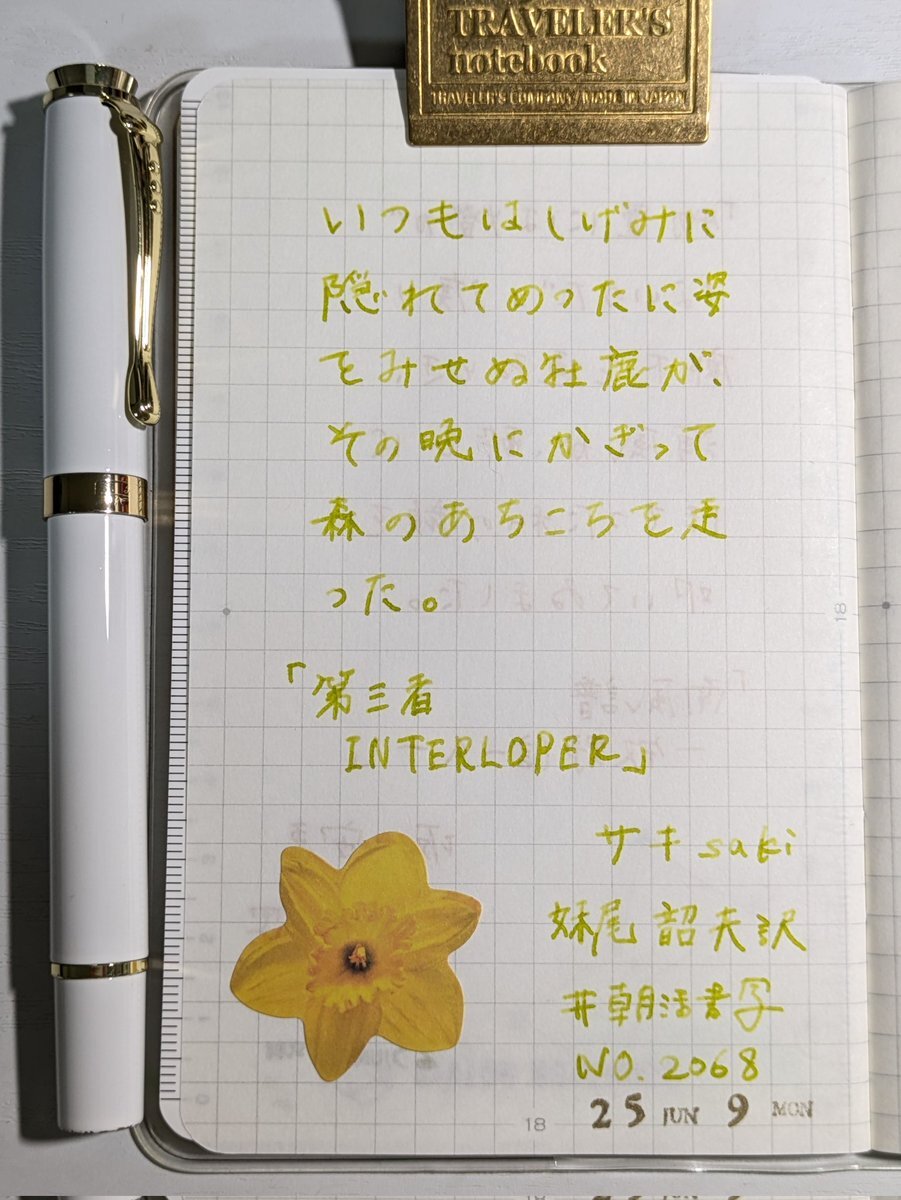 TRAVELER'S
notebook
TRAVELER'S COMPANY MADE IN JAPAN
いつもはしげみに
隠れてめったに姿
をみせぬ牡鹿が、
その晩にかぎって
森のあちこちを走
った。
「第三者
INTERLOPER」
サキ saki
妹尾 韶夫訳
#朝活書写
NO. 2068
25 JUN 9 MON
18
18